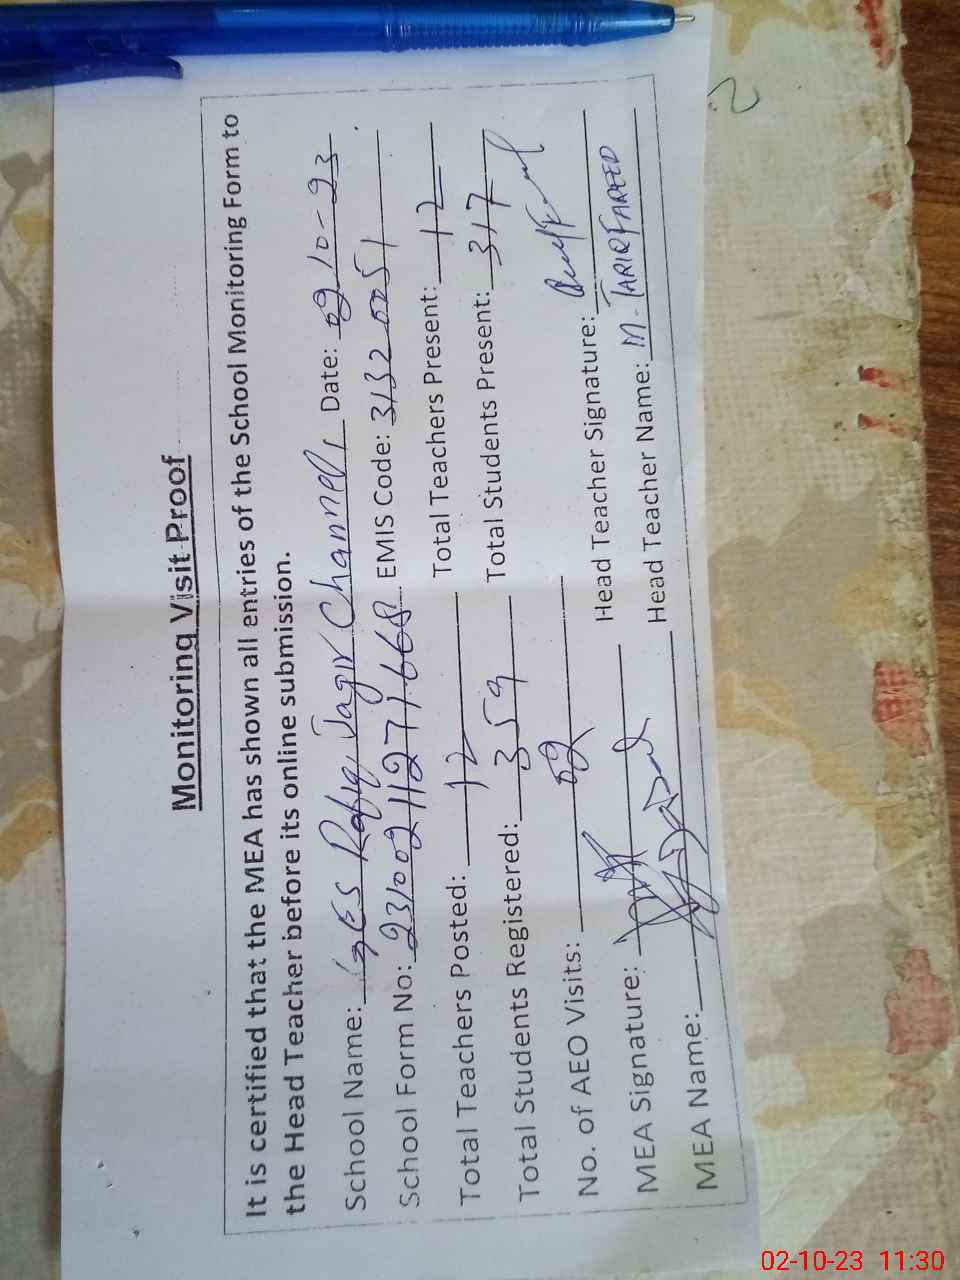 Monitoring Visit Proof
It is certified that the MEA has shown all entries of the School Monitoring Form to
the Head Teacher before its online submission.
School Name: GES Rafiq Jagir Channel, Date: 02-10-23
School Form No: 231002112771668 EMIS Code: 31320051
Total Teachers Posted: 12 Total Teachers Present: 12
Total Students Registered: 359 Total Students Present: 317
No. of AEO Visits: 02
MEA Signature: Head Teacher Signature:
MEA Name: Head Teacher Name: M. TARIQ FAREED
02-10-23 11:30